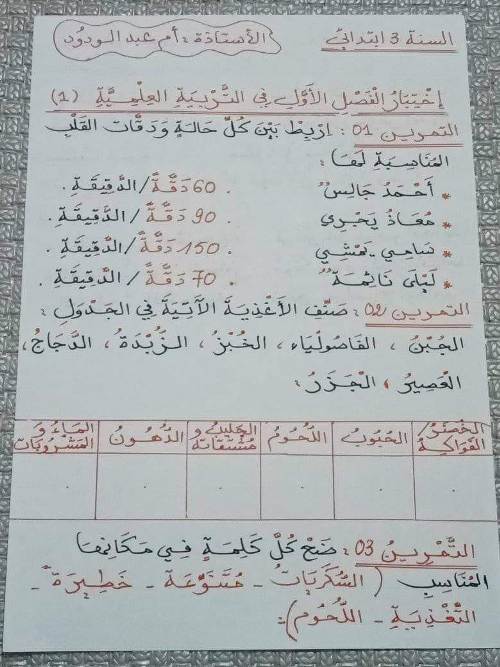 السنة 3 ابتدائي الأستاذة : أم عبد الودُود
إِخْتِبَارُ الْفَصْلِ الأَوَّلِ فِي التَّرْبِيَةِ العِلْمِيَّةِ (1)
التمرين 01 : اِرْبِطْ بَيْنَ كُلِّ حَالَةٍ وَدَقَّاتِ القَلْبِ
المُنَاسِبَةِ لَهَا :
* أَحْمَدُ جَالِسٌ . 60 دَقَّةً / الدَّقِيقَةِ .
* مُعَاذُ يَجْرِي . 90 دَقَّةً / الدَّقِيقَةِ .
* سَامِي يَمْشِي . 150 دَقَّةً / الدَّقِيقَةِ .
* لَيْلَى نَائِمَةٌ . 70 دَقَّةً / الدَّقِيقَةِ .
التمرين 02 : صَنِّفِ الأَغْذِيَةَ الآتِيَةَ فِي الجَدْوَلِ :
الجُبْنُ ، الفَاصُولْيَاء ، الخُبْزُ ، الزُّبْدَةُ ، الدَّجَاجُ ،
العَصِيرُ ، الْجَزَرُ :
الخُضَرُ / الفَوَاكِهُ الحُبُوبُ اللُّحُومُ الحَلِيبُ و مُشْتَقَّاتُهُ الدُّهُونُ المَاءُ وَ المَشْرُوبَاتُ
التَّمْرِينُ 03 : ضَعْ كُلَّ كَلِمَةٍ فِي مَكَانِهَا
المُنَاسِبِ ( السُّكَّرِيَّاتُ - مُتَنَوِّعَةً - خَطِيرَةً -
التَّغْذِيَةِ - اللُّحُومِ ) :